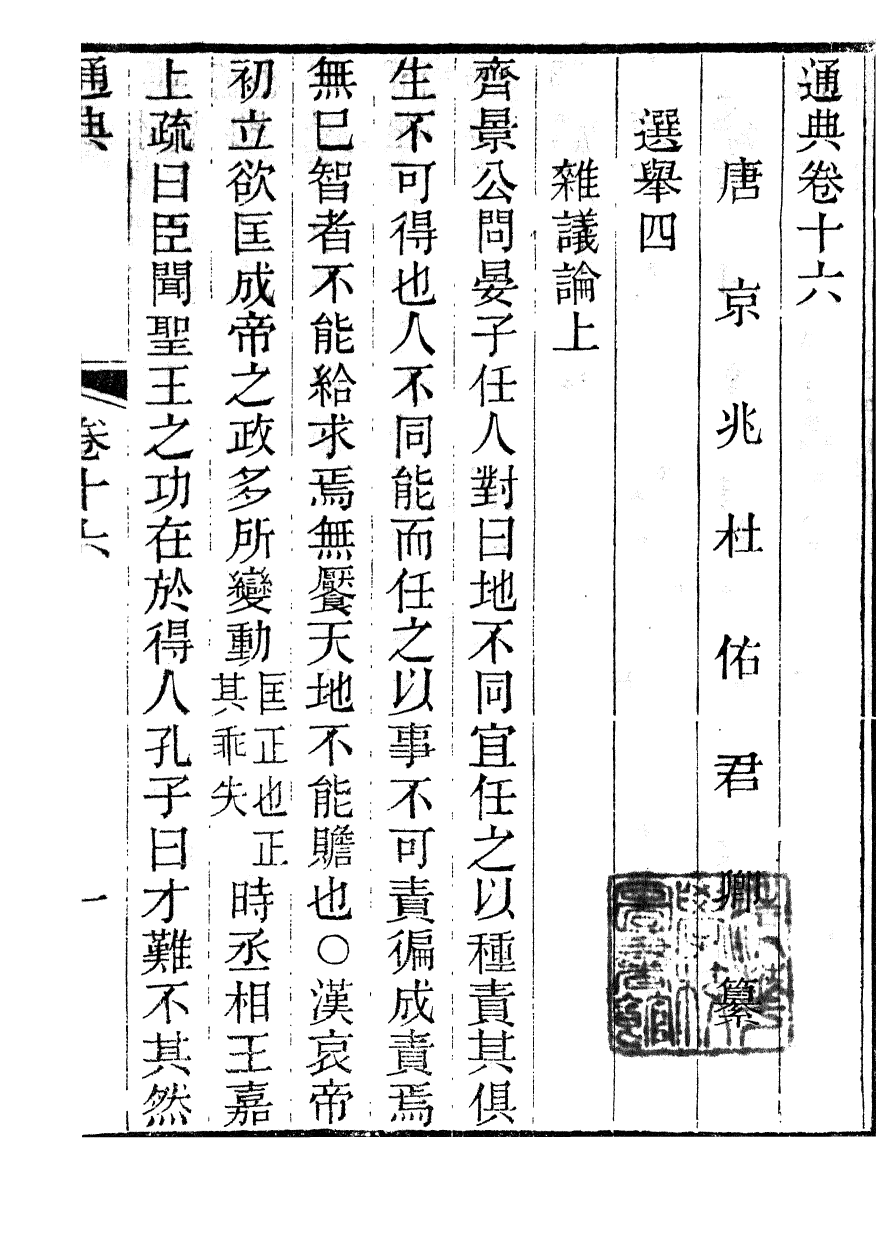 通典卷十六
唐京兆杜佑君卿纂
選舉四
雜議論上
齊景公問晏子任人對曰地不同宜任之以種責其俱
生不可得也人不同能而任之以事不可責徧成責焉
無已智者不能給求焉無饜天地不能贍也○漢哀帝
初立欲匡成帝之政多所變動匡正也正其乖失時丞相王嘉
上疏曰臣聞聖王之功在於得人孔子曰才難不其然
通典 卷十六 一